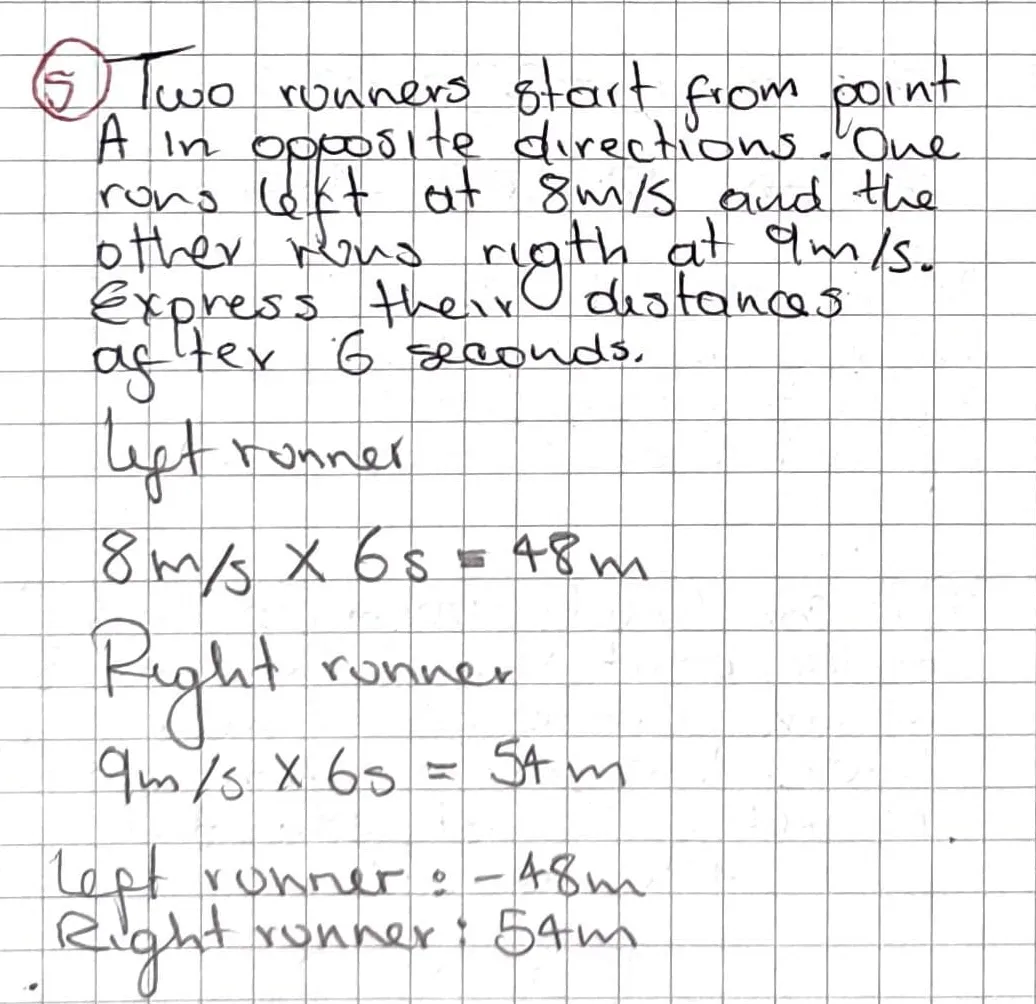 5 Two runners start from point
A in opposite directions. One
runs left at 8m/s and the
other runs rigth at 9m/s.
Express their distances
after 6 seconds.
Left runner
8m/s × 6s = 48m
Right runner
9m/s × 6s = 54m
Left runner : -48m
Right runner : 54m